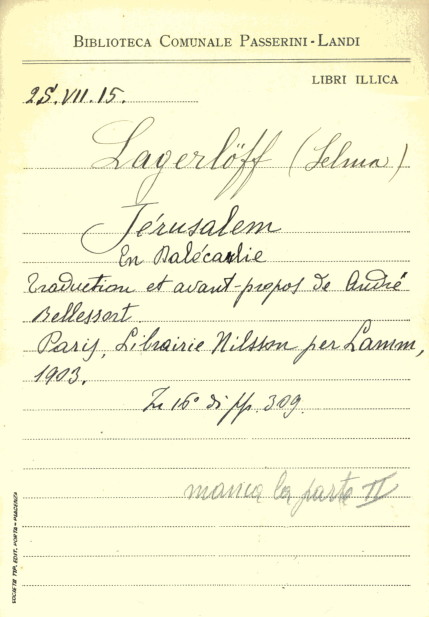 BIBLIOTECA COMUNALE PASSERINI-LANDI
LIBRI ILLICA
25.VII.15.
Lagerlöff (Selma)
Jérusalem
En Dalécarlie
Traduction et avant-propos de André
Bellessort
Paris, Librairie Nilsson per Lamm,
1903.
In 16° di pp. 309.
manca la parte II
SOCIETÀ TIP. EDIT. PORTA - PIACENZA